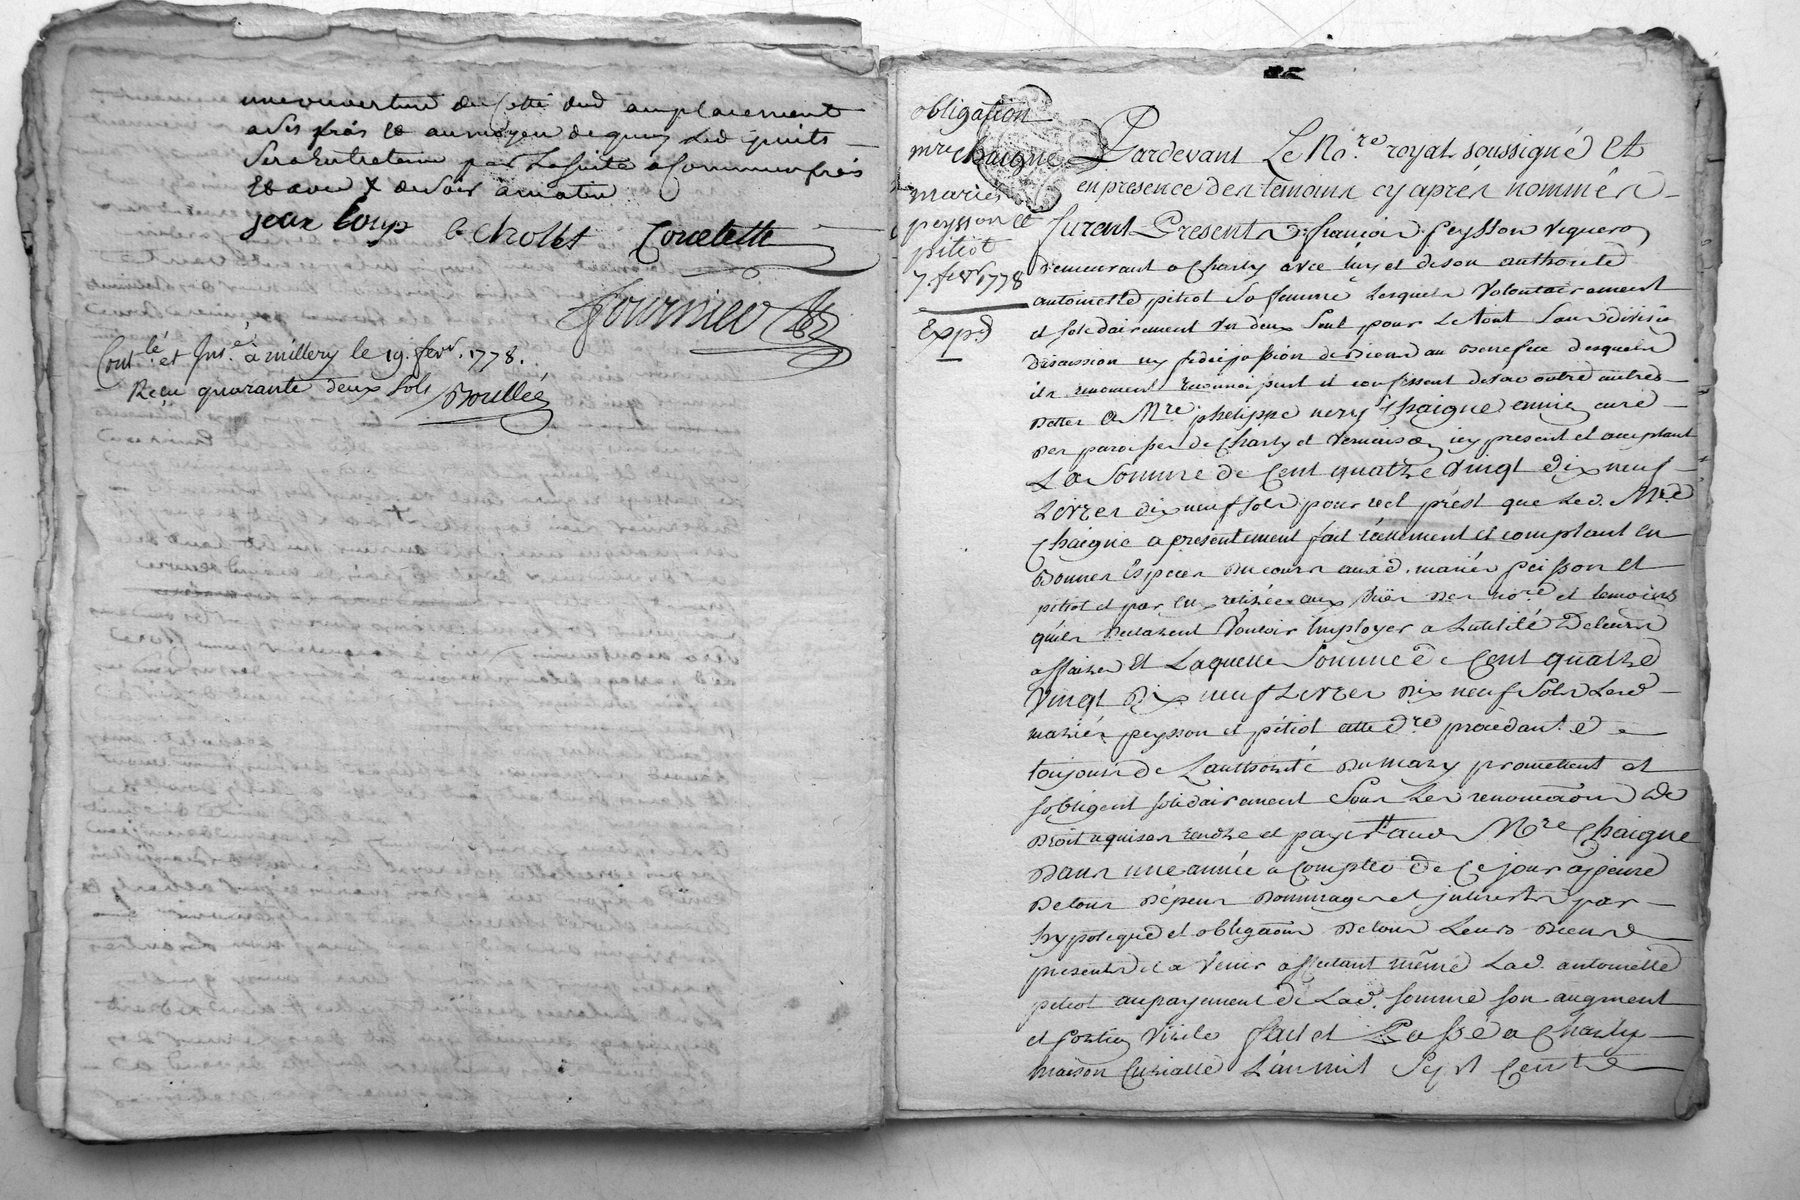 une ouverture du Cetté dud amplacement
a ses frais et au moyen de quoy led puits
Sera Entretenu par La Suitte a Commun frais
jean loup b chollet Coulette
fournier
Conlé et Insé à millery le 19 fevr. 1778.
Reçu quarante deux sols Boullée
obligation
mre chaigne
mariés
peysson et
pitiot
7 fevr 1778
Expd
Pardevant Le No.re royal soussigné Et
en presence des temoins cy aprés nommés
furent Presents francois Peysson vigneron
demeurant a Charly avec luy et de son authorité
antoinette pitiot Sa femme Lesquels Volontairement
et solidairement un deux seul pour Le tout Sans division
discussion ny fidéijussion de Biens au Benefice desquels
ils renoncent reconnoissent et confessent devoir entre autres
dettes a Mre phelippe nery Chaigne curé
des paroisses de Charly et Vernaison icy present et acceptant
La Somme de Cent quatre Vingt dix neuf
Livres dix neuf sols pour réel prest que Led. Mre
Chaigne a presentement fait réellement et comptant En
Bonnes Espèces du cours auxd. mariés peisson et
pitiot et par Eux retirée aux vües des No.re et temoins
quils declarent Vouloir Employer a Lutilité de leurs
affaires Et Laquelle Somme de Cent quatre
Vingt dix neuf Livres dix neuf Sols Lesd
mariés peysson et pitiot cette dre procédant
toujours de L'authorité du mary promettent et
s'obligent solidairement Sous Les renonciations de
droit requises rendre et payer aud Mre Chaigne
dans une année a compter de Ce jour a peine
de tous dépens dommages et interests par
hypoteque et obligation de tous Leurs Biens
presents et a Venir affectant même Lad. antoinette
pitiot au payement de Lad. somme son augment
et portion Virile fait et Passé a Charly
maison Curialle L'an mil Sept Cent